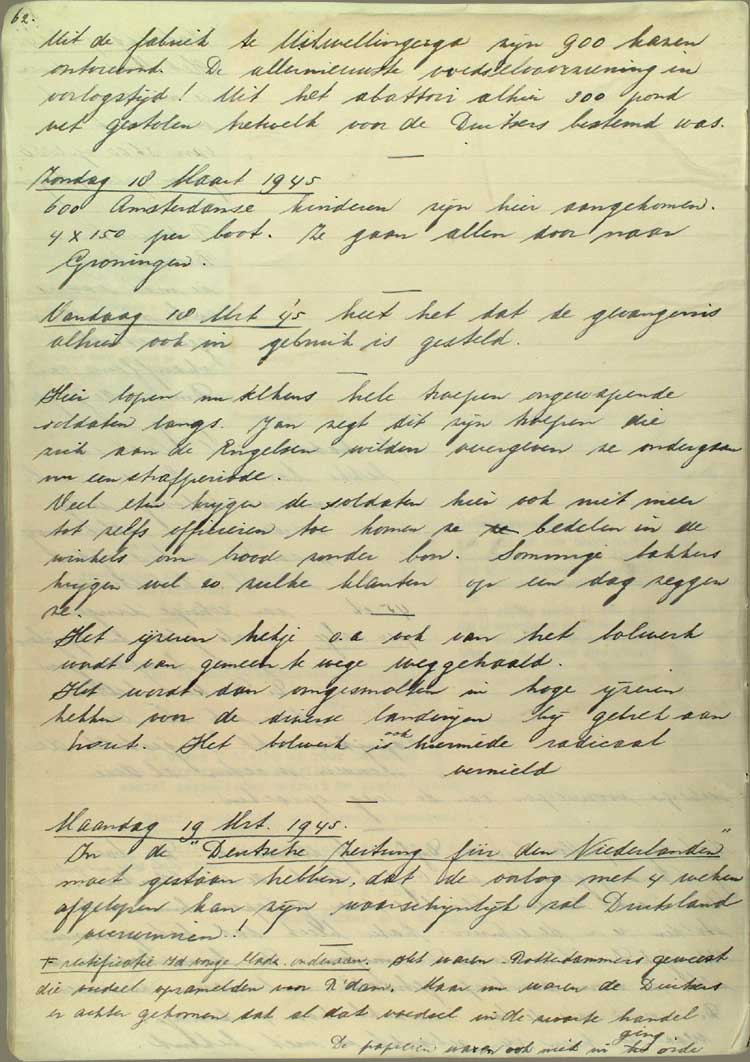 62.
Uit de fabriek te Uitwellingerga zijn 900 kazen
ontvreemd. De allernieuwste voedselvoorziening in
oorlogstijd! Uit het abattoir alhier 300 pond
vet gestolen hetwelk voor de Duitsers bestemd was.
Zondag 18 Maart 1945
600 Amsterdamse kinderen zijn hier aangekomen.
4 x 150 per boot. Ze gaan allen door naar
Groningen.
Vandaag 18 Mrt 45 heet het dat de gevangenis
alhier ook in gebruik is gesteld.
Hier lopen nu telkens hele troepen ongewapende
soldaten langs. Jan zegt dit zijn troepen die
zich aan de Engelsen wilden overgeven ze ondergaan
nu een strafperiode.
Veel eten krijgen de soldaten hier ook niet meer
tot zelfs officieren toe komen ze bedelen in de
winkels om brood zonder bon. Sommige bakkers
krijgen wel 20 zulke klanten op een dag zeggen
ze.
Het ijzeren hekje o.a ook van het bolwerk
wordt van gemeente wege weggehaald.
Het wordt dan omgesmolten in hoge ijzeren
hekken voor de diverse landerijen bij gebrek aan
hout. Het bolwerk is ook hiermede radicaal
vernield
Maandag 19 Mrt. 1945.
In de "Deutsche Zeitung für den Niederlanden"
moet gestaan hebben, dat de oorlog met 4 weken
afgelopen kan zijn waarschijnlijk zal Duitsland
overwinnen!
+ rectificatie zd vorige bladz. onderaan. Het waren Rotterdammers geweest
die voedsel opzamelden voor R'dam. Maar nu waren de Duitsers
er achter gekomen dat al dat voedsel in de zwarte handel
ging
De papieren waren ook niet in orde